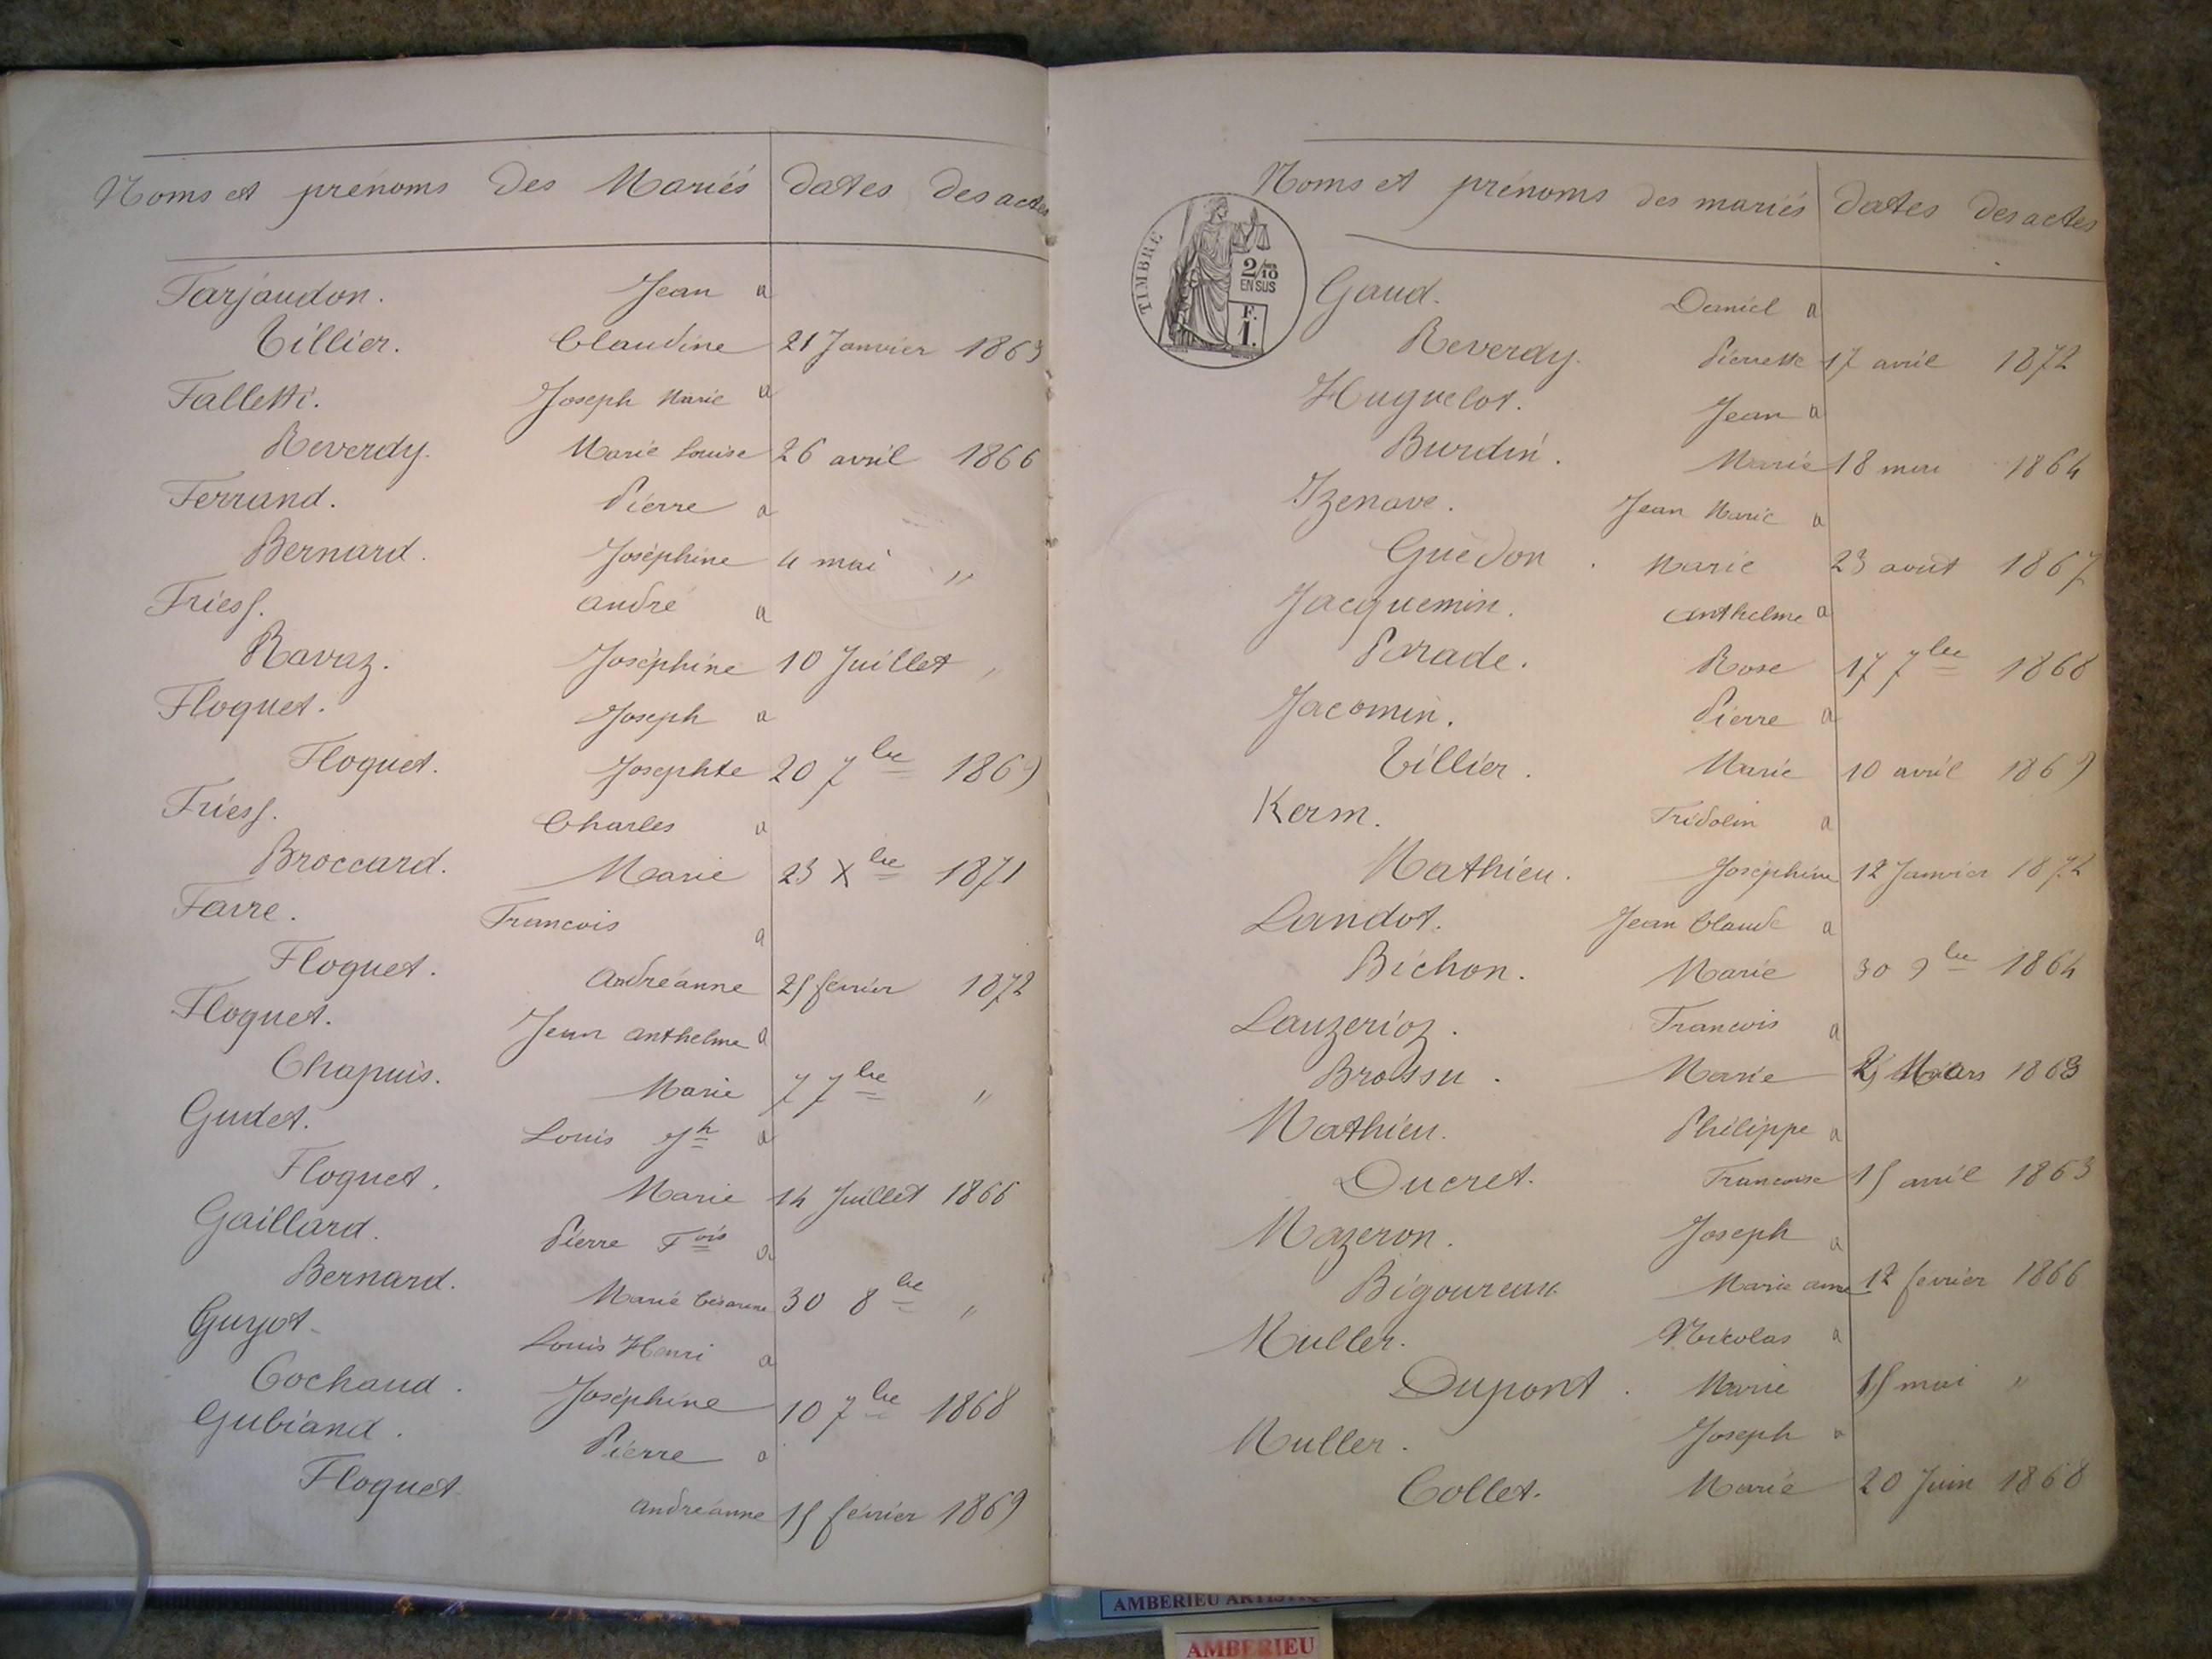 Noms et prénoms des Mariés dates des actes
Farjaudon. Jean a
Tillier. Claudine 21 Janvier 1863
Falletti. Joseph Marie a
Reverdy. Marie Louise 26 avril 1866
Ferrand. Pierre a
Bernard. Joséphine 4 mai "
Friess. andré a
Ravaz. Joséphine 10 Juillet "
Floquet. Joseph a
Floquet. Josephte 20 7bre 1869
Friess. Charles a
Broccard. Marie 23 Xbre 1871
Favre. Francois a
Floquet. andréanne 25 février 1872
Floquet. Jean anthelme a
Chapuis. Marie 7 7bre "
Gudet. Louis Jh a
Floquet. Marie 14 Juillet 1866
Gaillard. Pierre Fois a
Bernard. Marie Césarine 30 8bre "
Guyot. Louis Henri a
Cochaud. Joséphine 10 7bre 1868
Gubiand. Pierre a
Floquet andréanne 15 février 1869
Noms et prénoms des mariés dates des actes
TIMBRE
2/10
EN SUS
F.
1.
Gaud. Daniel a
Reverdy. Pierrette 17 avril 1872
Huguelot. Jean a
Burdin. Marie 18 mai 1864
Izenave. Jean Marie a
Guédon. Marie 23 aout 1867
Jacquemin. anthelme a
Parade. Rose 17 7bre 1868
Jacomin. Pierre a
Tillier. Marie 10 avril 1869
Kerm. Fridolin a
Mathieu. Joséphine 12 Janvier 1872
Landot. Jean Claude a
Bichon. Marie 30 9bre 1864
Lauzerioz. Francois a
Brossu. Marie Mars 1863
Mathieu. Philippe a
Ducret. Francoise 15 avril 1863
Mazeron. Joseph a
Bigoureau. Marie anne 12 février 1866
Muller. Nicolas a
Dupont. Marie 15 mai "
Muller. Joseph a
Collet. Marie 20 Juin 1868
AMBERIEU
AMBERIEU